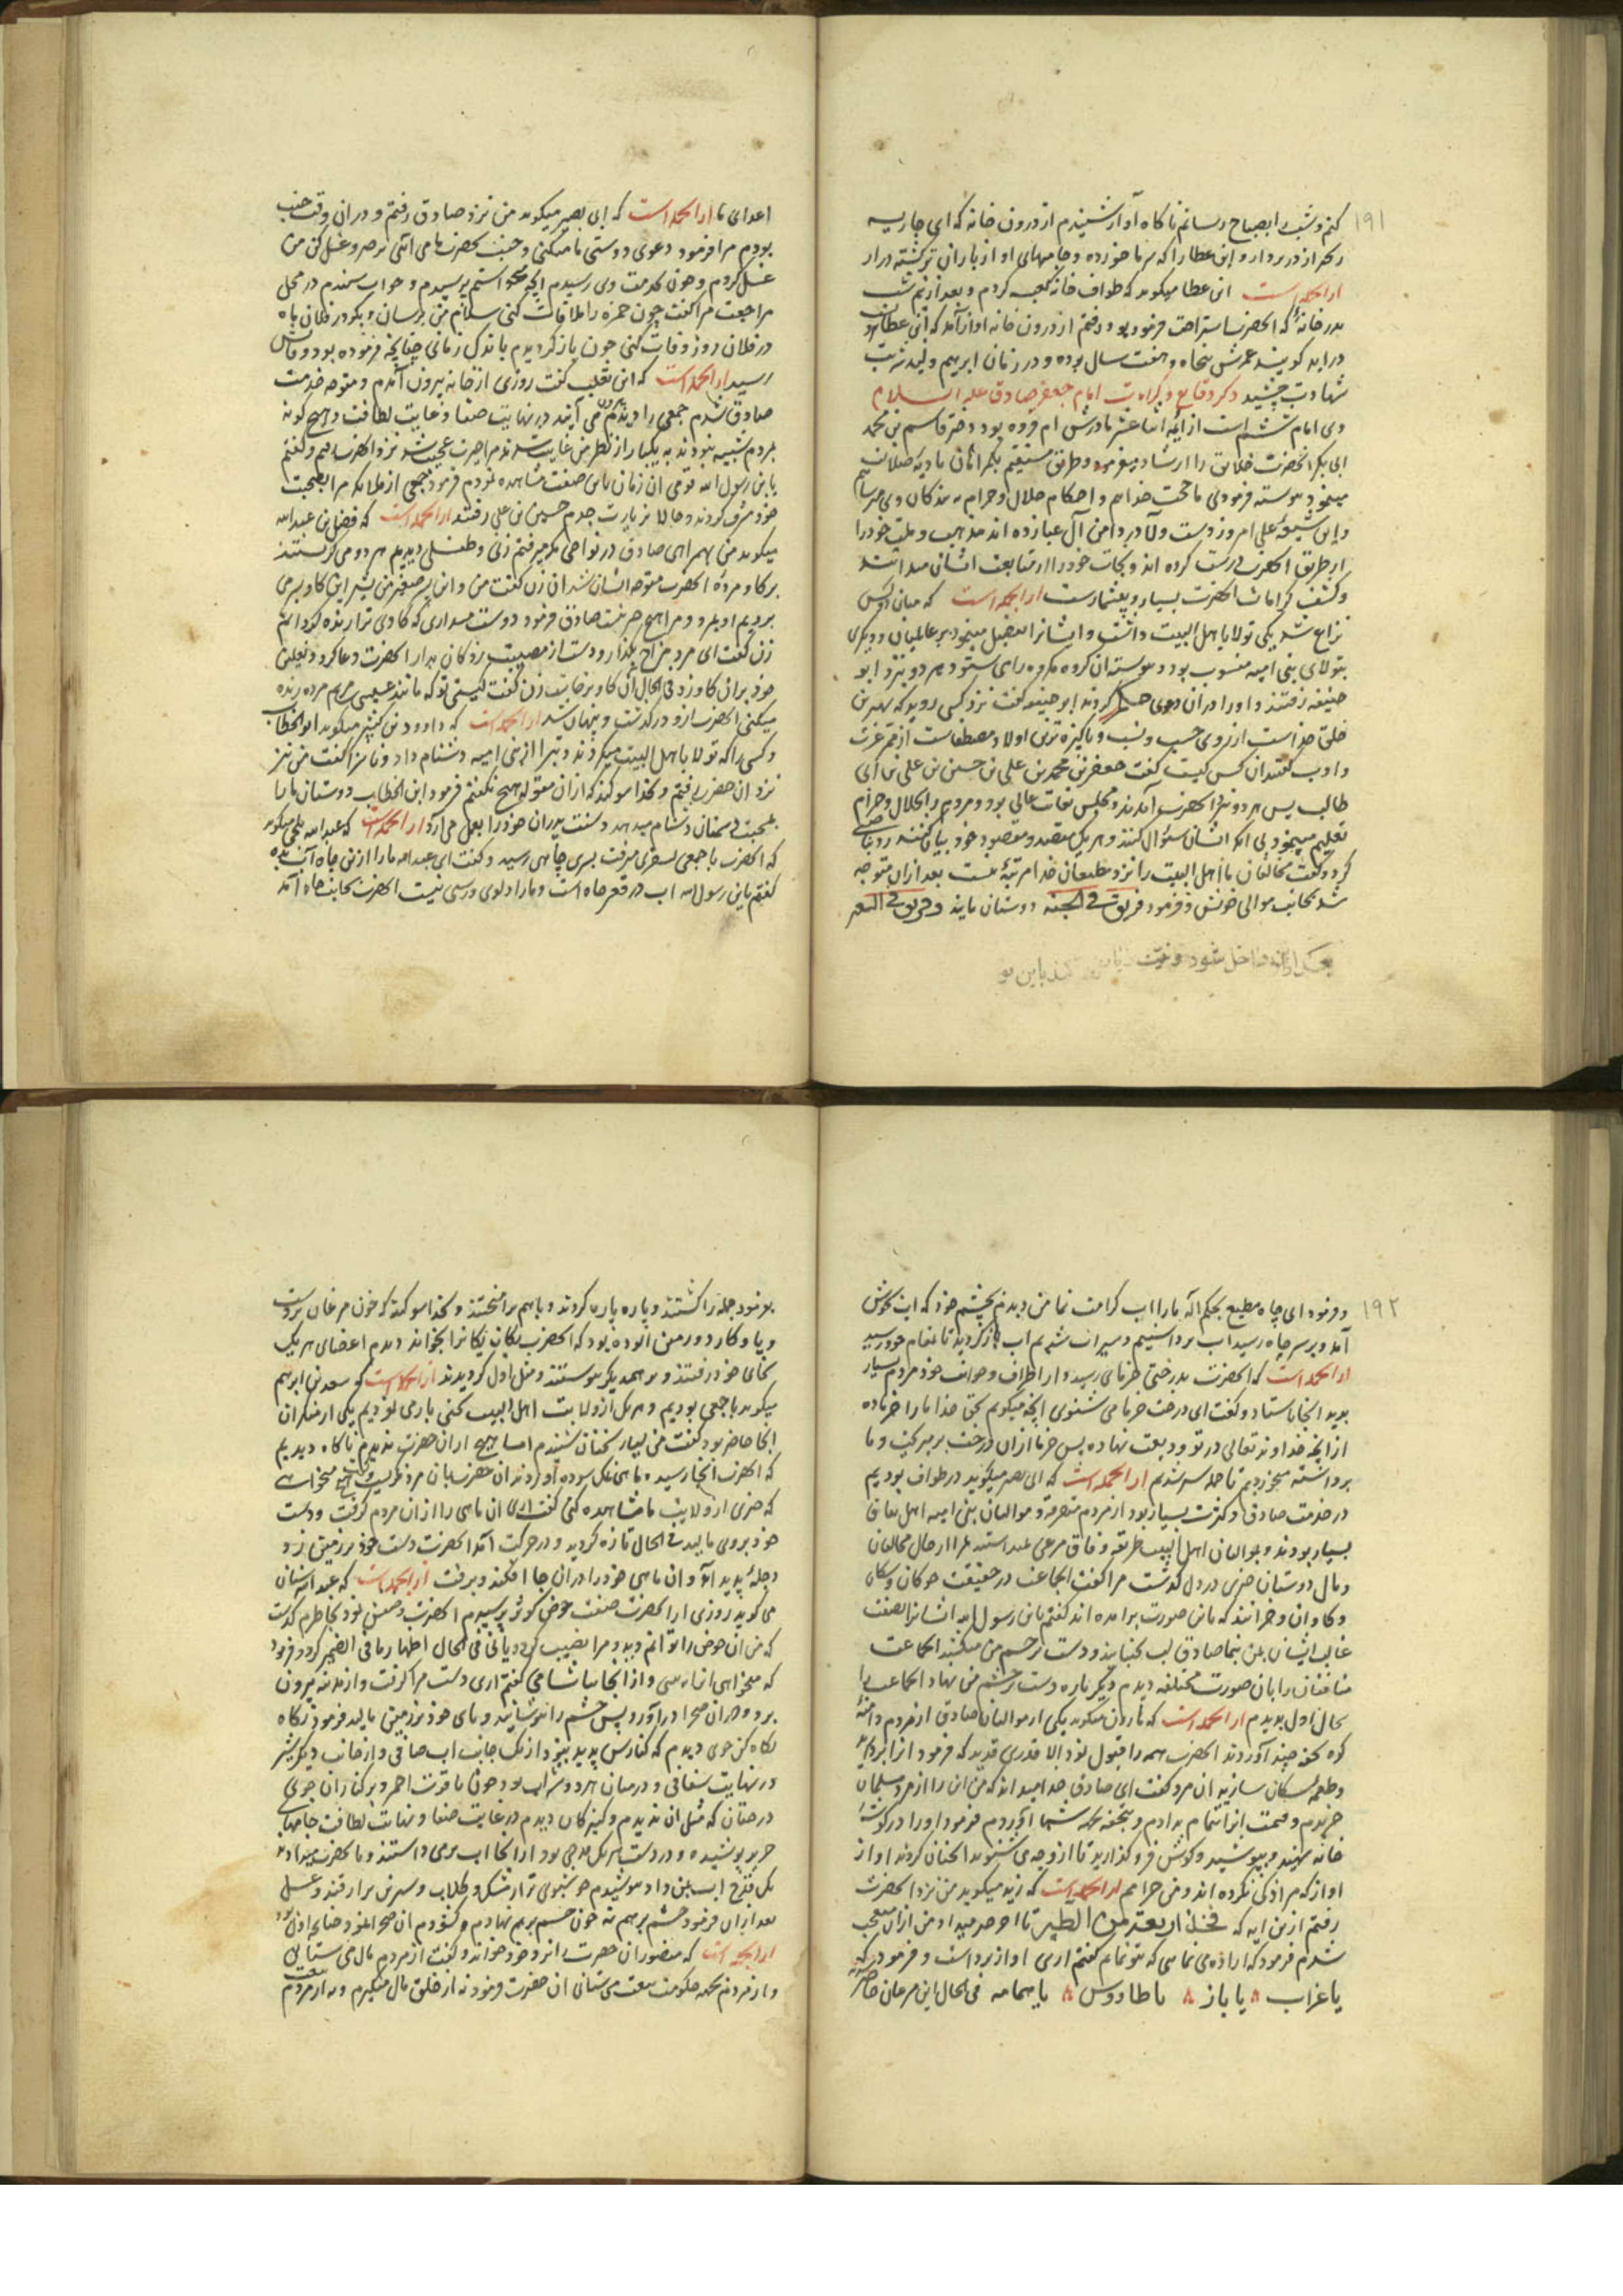 ۱۹۱
کنم و شب را بصباح رسانم ناکاه آواز شنیدم از درون خانه که ای جاریه
در بردار و ابن عطا را که سرما خورده و جامهای او از باران تر کشته درار
از انجمله است ابن عطا میکوید که طواف خانه کعبه کردم و بعد از نیم شب
بدر خانه که انحضرت استراحت فرموده بود رفتم از درون خانه اواز آمد که ابن عطا
دراید کویند عمرش پنجاه و هفت سال بوده و در زمان ابرهیم ولید شربت
شهادت چشید ذکر وقایع و کرامات امام جعفر صادق علیه السلام
وی امام ششم است از ایمه اثنا عشر مادرش ام فروه بود دختر قاسم بن محمد
ابی بکر انحضرت خلایق را ارشاد میفرمود و طریق مستقیم بکمراهان بادیه ضلالت
مینمود پیوسته فرمودی ما حجت خداایم و احکام حلال و حرام به بندکان وی میرسانیم
و این شیعه علی امروز دست ولا در دامن آل عبا زده اند مذهب و ملت خود را
از طریق انحضرت درست کرده اند و نجات خود را از متابعت ایشان میدانند
و کشف کرامات انحضرت بسیار و بیشمارست از انجمله است که میان دو کس
نزاع شد یکی تولا باهل البیت داشت و ایشانرا تفضیل مینمود بر عالمیان و دیکری
بتولای بنی امیه منسوب بود و پیوسته ان کروه مکروه را می ستود هر دو نزد ابو
حنیفه رفتند و او را در ان دعوی حکم کردند ابو حنیفه کفت نزد کسی روید که بهترین
خلق خداست از روی حسب و نسب و پاکیزه ترین اولاد مصطفاست از عترت
و ادب کفتند ان کس کیست کفت جعفر بن محمد بن علی بن حسین بن علی بن ابی
طالب پس هر دو نزد انحضرت آمدند و مجلس بغایت عالی بود و مردم را حلال و حرام
تعلیم مینمود بی انکه ایشان سؤال کنند و هر یک مقصد و مقصود خود بیان کنند رو بناصبی
کرد و کفت مخالفان ما اهل البیت را نزد مطیعان خدا مرتبه نیست بعد ازان متوجه
شد بجانب موالی خویش و فرمود فریق فی الجنه دوستان مایند و فریق فی السعیر
داخل شود
اعدای ما از انجمله است که ابی بصیر میکوید من نزد صادق رفتم و در ان وقت جنب
بودم مرا فرمود دعوی دوستی ما میکنی و جنب بحضرت ما می آئی برخیز و غسل کن من
غسل کردم و چون بخدمت وی رسیدم انچه میخواستم پرسیدم و جواب شنیدم در محل
مراجعت مرا کفت چون حمزه را ملاقات کنی سلام من برسان و بکو در فلان ماه
در فلان روز وفات کنی چون باز کردیدم باندک زمانی چنانچه فرموده بود وفاتش
رسید از انجمله است که ابن تغلب کفت روزی از خانه بیرون آمدم و متوجه خدمت
صادق شدم جمعی را دیدم بیرون می آیند در نهایت صفا و غایت لطافت و هیچ کونه
بمردم شبیه نبودند به یکبار از نظر من غایب شدند مرا حیرت عجب شد نزد انحضرت رفتم و کفتم
یابن رسول الله قومی ان زمان باین صفت مشاهده نمودم فرمود جمعی از ملایکه مرا بصحبت
خود مشرف کردند و حالا بزیارت جدم حسین بن علی رفتند از انجمله است که فضل بن عبدالله
میکوید من همراهی صادق در نواحی مکه میرفتم زنی و طفلی دیدیم هر دو می کریستند
بر کاو مرده انحضرت متوجه ایشان شد ان زن کفت من و این پسر صغیر من بشیر این کاو بسر می
بردیم او بمرد و مرا هیچ حرفت صادق فرمود دوست میداری که کاو ترا زنده کردانم
زن کفت ای مرد مزاح بکذار و دست از مصیبت زدکان بدار انحضرت دعا کرد و نعلین
خود بران کاو زد فی الحال ان کاو برخاست زن کفت کیستی تو که مانند عیسی مریم مرده زنده
میکنی انحضرت ازو درکذشت و پنهان شد از انجمله است که داود بن کثیر میکوید ابو الخطاب
و کسی را که تولا باهل البیت میکردند و تبرا از بنی امیه دشنام داد و ناسزا کفت من نیز
نزد ان حضرت رفتم و بخدا سوکند که ازان مقوله هیچ نکفتم فرمود ابن الخطاب دوستان ما را
بمحبت و سخنان دشنام میدهد و سنت پدران خود را بعمل می آرد از انجمله است که عبدالله بلخی میکوید
که انحضرت با جمعی بسفری میرفت بسر چاهی رسید و کفت ای عبدالله ما را ازین چاه آب ده
کفتم یابن رسول الله اب در قعر چاه است و ما را دلوی و رسنی نیست انحضرت بجانب چاه آمد
۱۹۲
و فرمود ای چاه مطیع بحکم اله ما را اب کرامت نما من دیدم بچشم خود که اب بجوش
آمد و بر سر چاه رسید اب برداشتیم و سیراب شدیم اب باز کردید تا بمقام خود رسید
از انجمله است که انحضرت بدرختی خرمای رسید و از اطراف و جوانب خود مردم بسیار
بدید انجا باستاد و کفت ای درخت خرما می شنوی انچه میکویم بحق خدا ما را خرما ده
از انچه خداوند تعالی در تو ودیعت نهاده پس خرما ازان درخت بر میریخت و ما
برداشته میخوردیم تا جمله سیر شدیم از انجمله است که ابی بصیر میکوید در طواف بودیم
در خدمت صادق و کثرت بسیار بود از مردم متفرقه و موالیان بنی امیه اهل نفاق
بسیار بودند و موالیان اهل البیت طریقه وفاق مرعی میداشتند مرا از حال مخالفان
و مال دوستان چیزی در دل کذشت مرا کفت این جماعت در حقیقت خوکان و سکان
و کاوان و خرانند که باین صورت برامده اند کفتم یابن رسول الله ایشانرا بصفت
غالب ایشان بمن بنما صادق لب بجنبانید و دست بر چشم من میکشید انجماعت
منافقان را بان صورت مختلفه دیدم دیکر باره دست بر چشم من نهاد انجماعت را
بحال اول بدیدم از انجمله است که هارون میکوید یکی از موالیان صادق از مردم دامنه
کوه تحفه چند آوردند انحضرت همه را قبول نمود الا قدری قدید که فرمود انرا بردارید
و طعمه سکان سازید ان مرد کفت ای صادق خدا میداند که من این را از مرد مسلمان
خریدم و قیمت انرا تمام بدادم و بتحفه بجهت شما آوردم فرمود او را در کوشه
خانه نهید و بپوشید و کوش فرو کذارید تا از وجه می شنوید انچنان کردند اواز
اواز که مرا ذکی نکرده اند و من حرامم از انجمله است که زید میکوید من نزد انحضرت
رفتم ازین ایه که فخذ اربعة من الطیر تا اخر میداد من ازان متعجب
شدم فرمود که اراده می نمایی که بتو نمایم کفتم اری اواز برداشت و فرمود که
یا غراب ۸ یا باز ۸ یا طاووس ۸ یا حمامه فی الحال این مرغان حاضر شدند
بفرمود جمله را کشتند و پاره پاره کردند و باهم برامیختند و بخدا سوکند که خون مرغان بر دست
و پا و کارد و زمین الوده بود که انحضرت یکان یکانرا بخواند دیدم اعضای هر یک
بجای خود رفتند و بر همدیکر پیوستند و مثل اول کردیدند از انجمله است که سعد بن ابرهیم
میکوید با جمعی بودیم و هر یک از ولایت اهل البیت کنی یاد می نمودیم یکی از منکران
انجا حاضر بود کفت من بسیار سخنان شنیدم اما هیچ از ان حضرت ندیدم ناکاه دیدیم
که انحضرت انجا رسید و ماهی نمک سوده آوردند ان حضرت بان مرد نکریست و کفت میخواهی
که چیزی از ولایت ما مشاهده کنی کفت اری ان ماهی را از ان مردم کرفت و دست
خود بروی مالید فی الحال تازه کردید و در حرکت امد انحضرت دست خود بر زمین زد
دجله پدید آمد و ان ماهی خود را در ان جا افکند و برفت از انجمله است که عبدالله سنان
می کوید روزی از انحضرت صفت حوض کوثر پرسیدم انحضرت وصفش نمود بخاطرم کذشت
که من ان حوض را توانم دید و مرا نصیب کردد یا نی فی الحال اظهار ما فی الضمیر کرد و فرمود
که میخواهی انرا ببینی و از انجا بیاشامی کفتم اری دست مرا کرفت و از مدینه بیرون
برد و در ان صحرا دراورد و پس چشم را بپوشانید و پای خود بر زمین مالید فرمود نکاه
نکاه کن جوی دیدم که کنارش پدید نبود از یک جانب اب صافی و از جانب دیکر شیر
در نهایت سفافی و در میان هر دو شراب بود چون یاقوت احمر و بر کنار ان جوی
درختان که مثل ان ندیدم و کنیزکان دیدم در غایت صفا و نهایت لطافت جامهای
حریر پوشیده و در دست هر یک قدحی بود از انجا اب برمی داشتند و بانحضرت میدادند
یک قدح اب بمن داد نوشیدم خوشبوی تر از مشک و کلاب و شیرین تر از قند و عسل
بعد ازان فرمود چشم بر هم نه چون چشم بر هم نهادم و کشودم ان صحرا نمود چنانچه اول بود
از انجمله است که منصور ان حضرت را نزد خود خواند و کفت از مردم مال می ستانی
و از مردم بجهت حکومت بیعت می ستانی ان حضرت فرمود نه از خلق مال میکیرم و نه از مردم بیعت